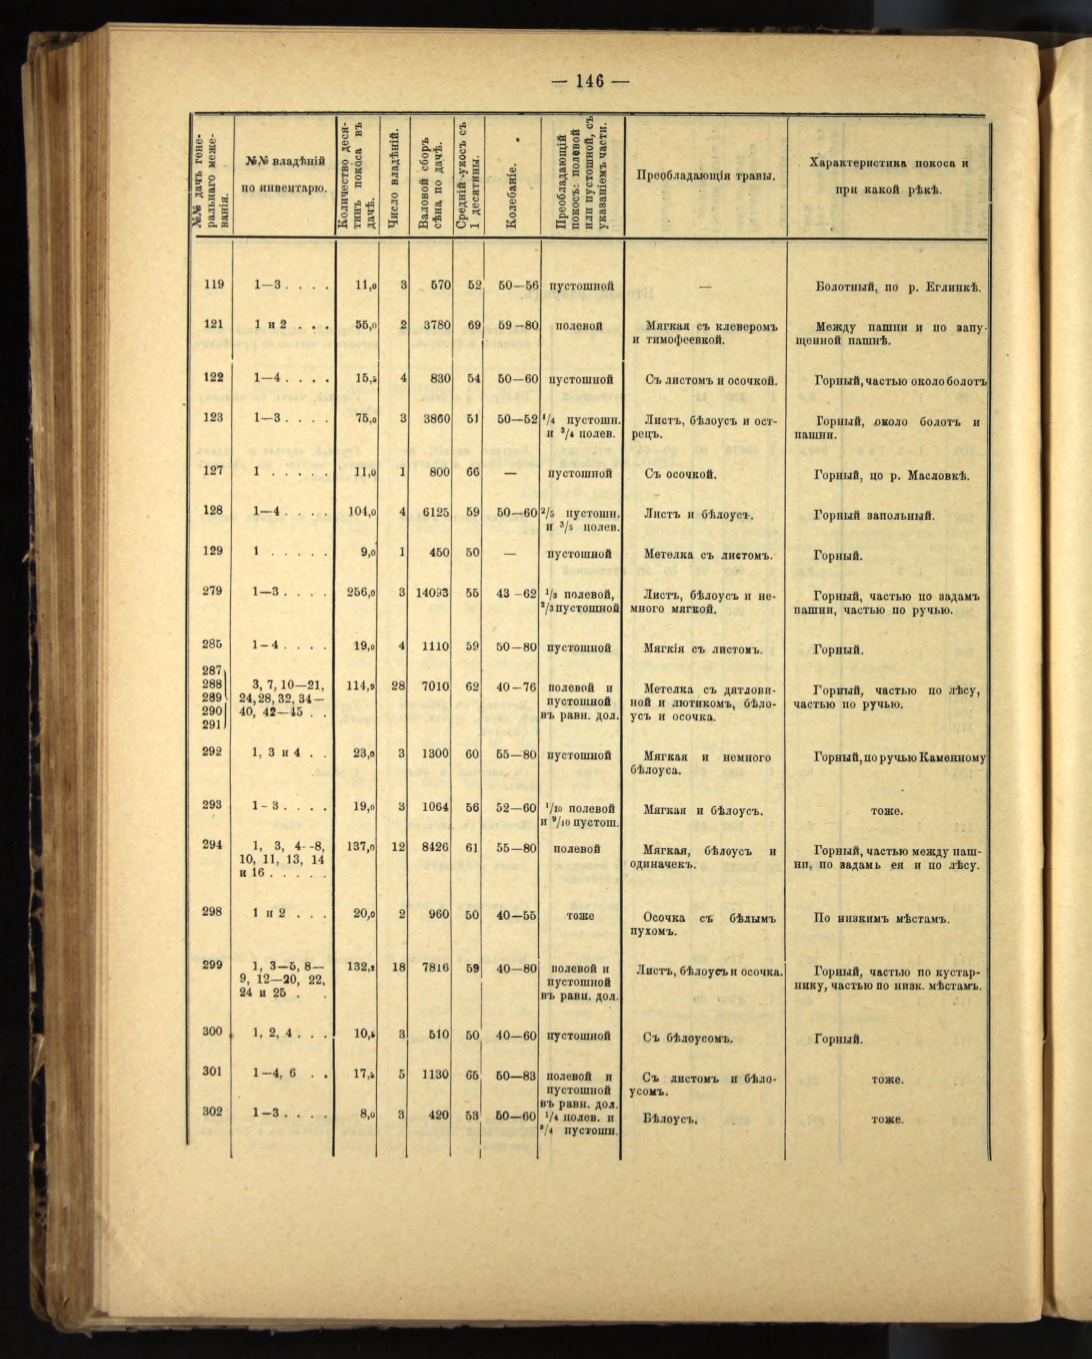 — 146 —
№№ дачъ гене-
ральнаго меже-
ванія.
№№ владѣній
по инвентарю.
Количество деся-
тинъ покоса въ
дачѣ.
Число владѣній.
Валовой сборъ
сѣна по дачѣ.
Средній укосъ съ
1 десятины.
Колебаніе.
Преобладающій
покосъ: полевой
или пустошной, съ
указаніемъ части.
Преобладающія травы.
Характеристика покоса и
при какой рѣкѣ.
119 1—3 . . . . 11,0 3 570 52 50—56 пустошной — Болотный, по р. Еглинкѣ.
121 1 и 2 . . . 55,0 2 3780 69 59—80 полевой Мягкая съ клеверомъ Между пашни и по запу-
и тимофеевкой. щенной пашнѣ.
122 1—4 . . . . 15,5 4 830 54 50—60 пустошной Съ листомъ и осочкой. Горный, частью около болотъ
123 1—3 . . . . 75,0 3 3860 51 50—52 1/4 пустошн. Листъ, бѣлоусъ и ост- Горный, около болотъ и
и 3/4 полев. рецъ. пашни.
127 1 . . . . . 11,0 1 800 66 — пустошной Съ осочкой. Горный, по р. Масловкѣ.
128 1—4 . . . . 104,0 4 6125 59 50—60 2/5 пустошн. Листъ и бѣлоусъ. Горный запольный.
и 3/5 полев.
129 1 . . . . . 9,0 1 450 50 — пустошной Метелка съ листомъ. Горный.
279 1—3 . . . . 256,0 3 14093 55 43—62 1/3 полевой, Листъ, бѣлоусъ и не- Горный, частью по задамъ
2/3 пустошной много мягкой. пашни, частью по ручью.
285 1—4 . . . . 19,0 4 1110 59 50—80 пустошной Мягкія съ листомъ. Горный.
287
288 3, 7, 10—21, 114,9 28 7010 62 40—76 полевой и Метелка съ дятлови- Горный, частью по лѣсу,
289 24, 28, 32, 34— пустошной ной и лютикомъ, бѣло- частью по ручью.
290 40, 42—45 . . въ равн. дол. усъ и осочка.
291
292 1, 3 и 4 . . 23,0 3 1300 60 55—80 пустошной Мягкая и немного Горный, по ручью Каменному
бѣлоуса.
293 1—3 . . . . 19,0 3 1064 56 52—60 1/10 полевой Мягкая и бѣлоусъ. тоже.
и 9/10 пустош.
294 1, 3, 4—8, 137,0 12 8426 61 55—80 полевой Мягкая, бѣлоусъ и Горный, частью между паш-
10, 11, 13, 14 одиначекъ. ни, по задамъ ея и по лѣсу.
и 16 . . . . .
298 1 и 2 . . . 20,0 2 960 50 40—55 тоже Осочка съ бѣлымъ По низкимъ мѣстамъ.
пухомъ.
299 1, 3—5, 8— 132, 18 7816 59 40—80 полевой и Листъ, бѣлоусъ и осочка. Горный, частью по кустар-
9, 12—20, 22, пустошной нику, частью по низк. мѣстамъ.
24 и 25 . . въ равн. дол.
300 1, 2, 4 . . . 10, 3 510 50 40—60 пустошной Съ бѣлоусомъ. Горный.
301 1—4, 6 . . 17, 5 1130 65 50—83 полевой и Съ листомъ и бѣло- тоже.
пустошной усомъ.
въ равн. дол.
302 1—3 . . . . 8,0 3 420 53 50—60 1/4 полев. и Бѣлоусъ. тоже.
3/4 пустошн.